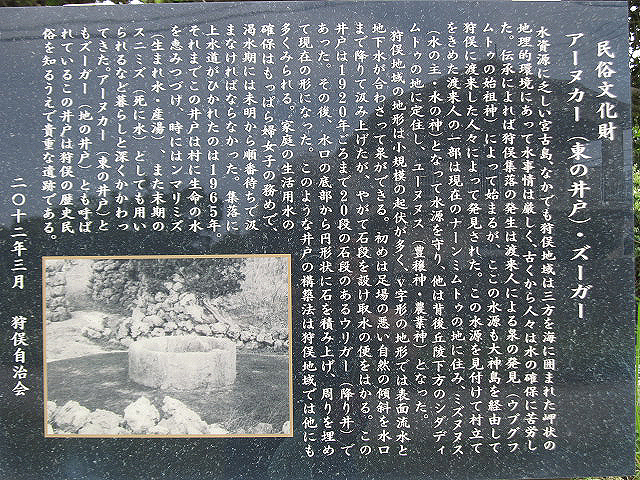 民俗文化財
アーヌカー（東の井戸）・ズーガー
水資源に乏しい宮古島、なかでも狩俣地域は三方を海に囲まれた岬状の
地理的環境にあって水事情は厳しく、古くから人々は水の確保に苦労し
た。伝承によれば狩俣集落の発生は渡来人による泉の発見（ウプグフ
ムトゥの始祖神）によって始まるが、ここの水源も大神島を経由して
狩俣に渡来した人々によって発見された。この水源を見付けて村立て
をきめた渡来人の一部は現在のナーンミムトゥの地に住み、ミズヌヌス
（水の主・水の神）となって水源を守り、他は背後丘陵下方のシダディ
ムトゥの地に定住し、ユーヌヌス（豊穣神・農業神）となった。
狩俣地域の地形は小規模の起伏が多く、V字形の地形では表面流水と
地下水が合わさって泉ができる。初めは足場の悪い自然の傾斜を水口
まで降りて汲み上げたが、やがて石段を設け取水の便をはかる。この
井戸は1920年ごろまで20段の石段のあるウリガー（降り井）で
あった。その後、水口の底部から円形状に石を積み上げ、周りを埋め
て現在の形になった。このような井戸の構築法は狩俣地域では他にも
多くみられる。家庭の生活用水の
確保はもっぱら婦女子の務めで、
渇水期には未明から順番待ちで汲
まなければならなかった。集落に
上水道がひかれたのは1965年。
それまでこの井戸は村に生命の水
を恵みつづけ、時にはンマリミズ
（生まれ水・産湯）、また末期の
スニミズ（死に水）としても用い
られるなど暮らしと深くかかわっ
てきた。アーヌカー（東の井戸）と
もズーガー（地の井戸）とも呼ば
れているこの井戸は狩俣の歴史民
俗を知るうえで貴重な遺跡である。
二〇十二年三月　狩俣自治会